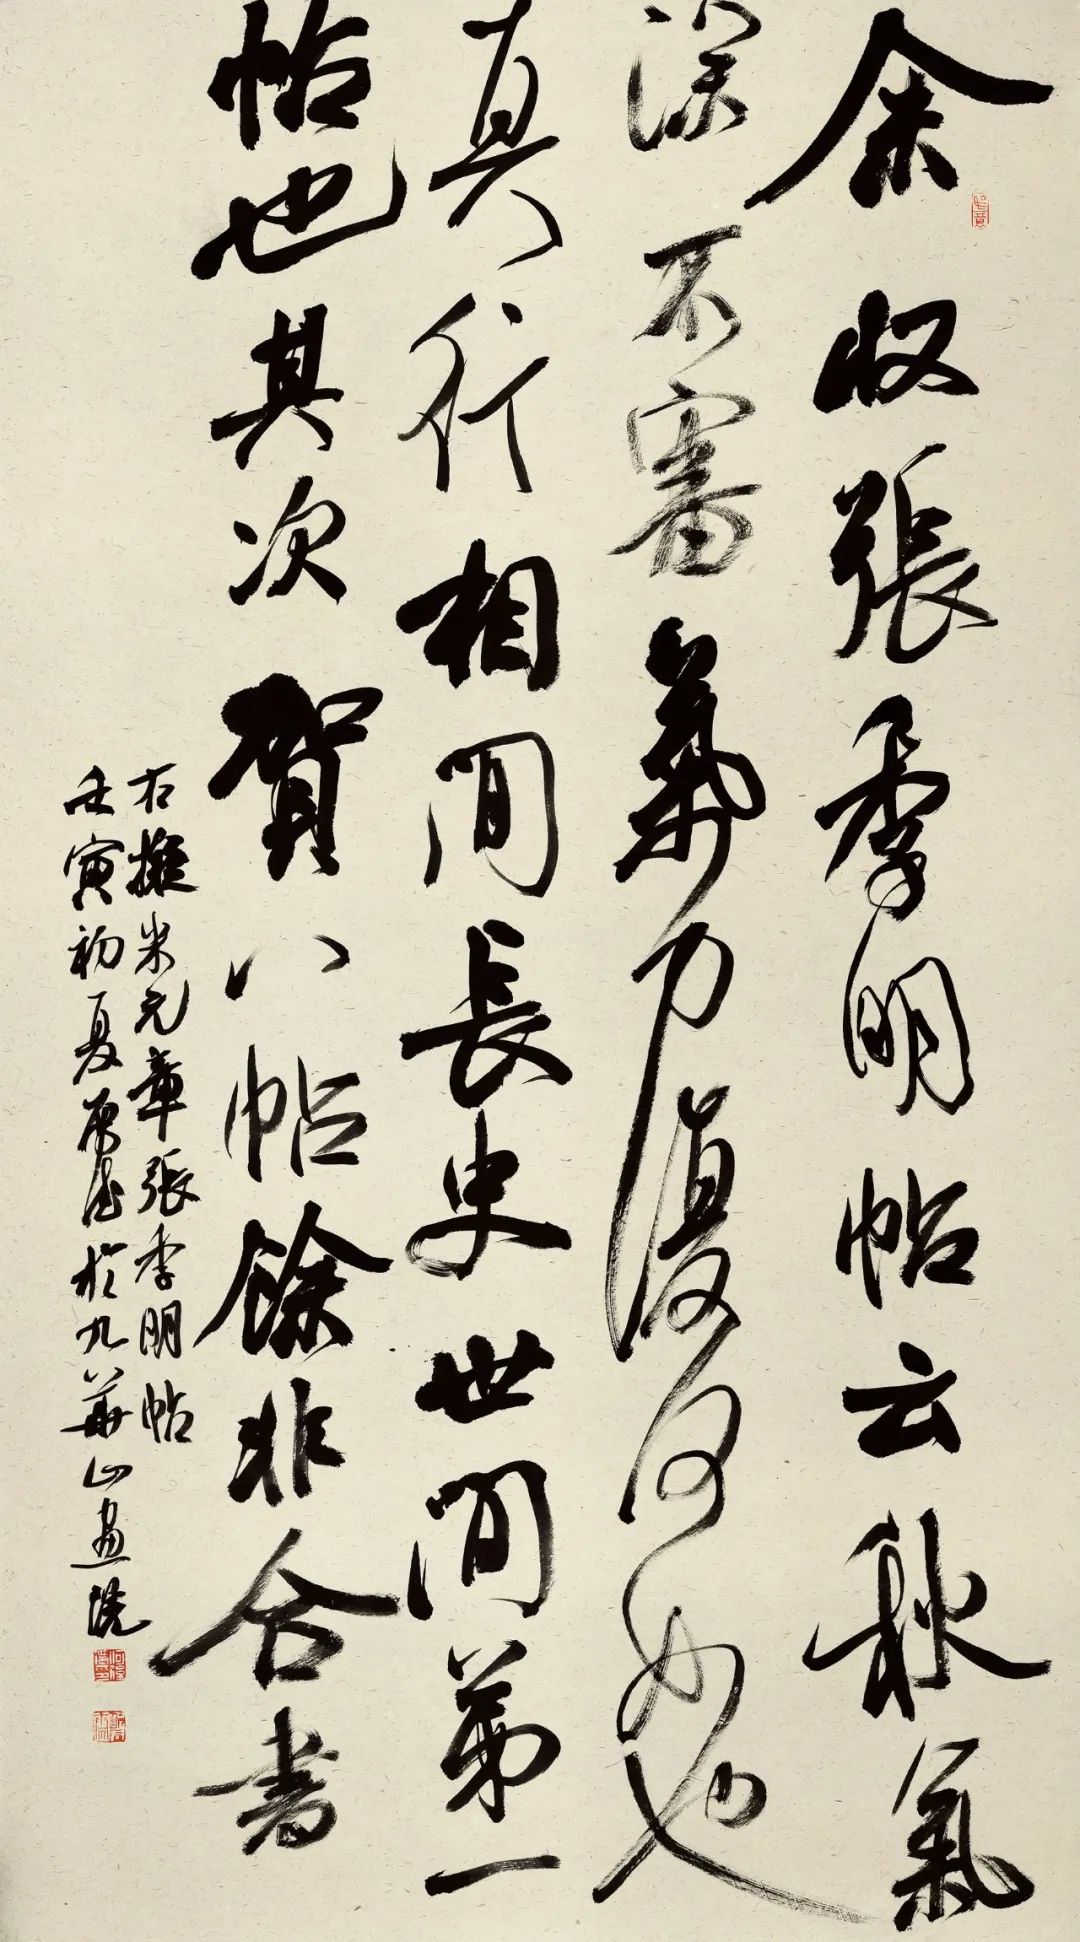 余收張季明帖云秋氣
深不審氣力復何如也
真行相間長史世間第一
帖也其次賀八帖餘非合書
右擬米元章張季明帖
壬寅初夏於九華山畫院